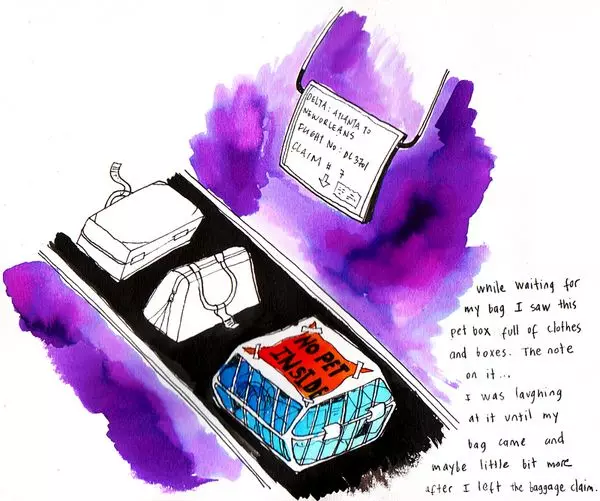 DELTA: ATLANTA TO
NEWORLEANS
FLIGHT NO: DL3701
CLAIM # 7
NO PET
INSIDE
While waiting for
my bag I saw this
pet box full of clothes
and boxes. The note
on it...
I was laughing
at it until my
bag came and
maybe little bit more
after I left the baggage claim.